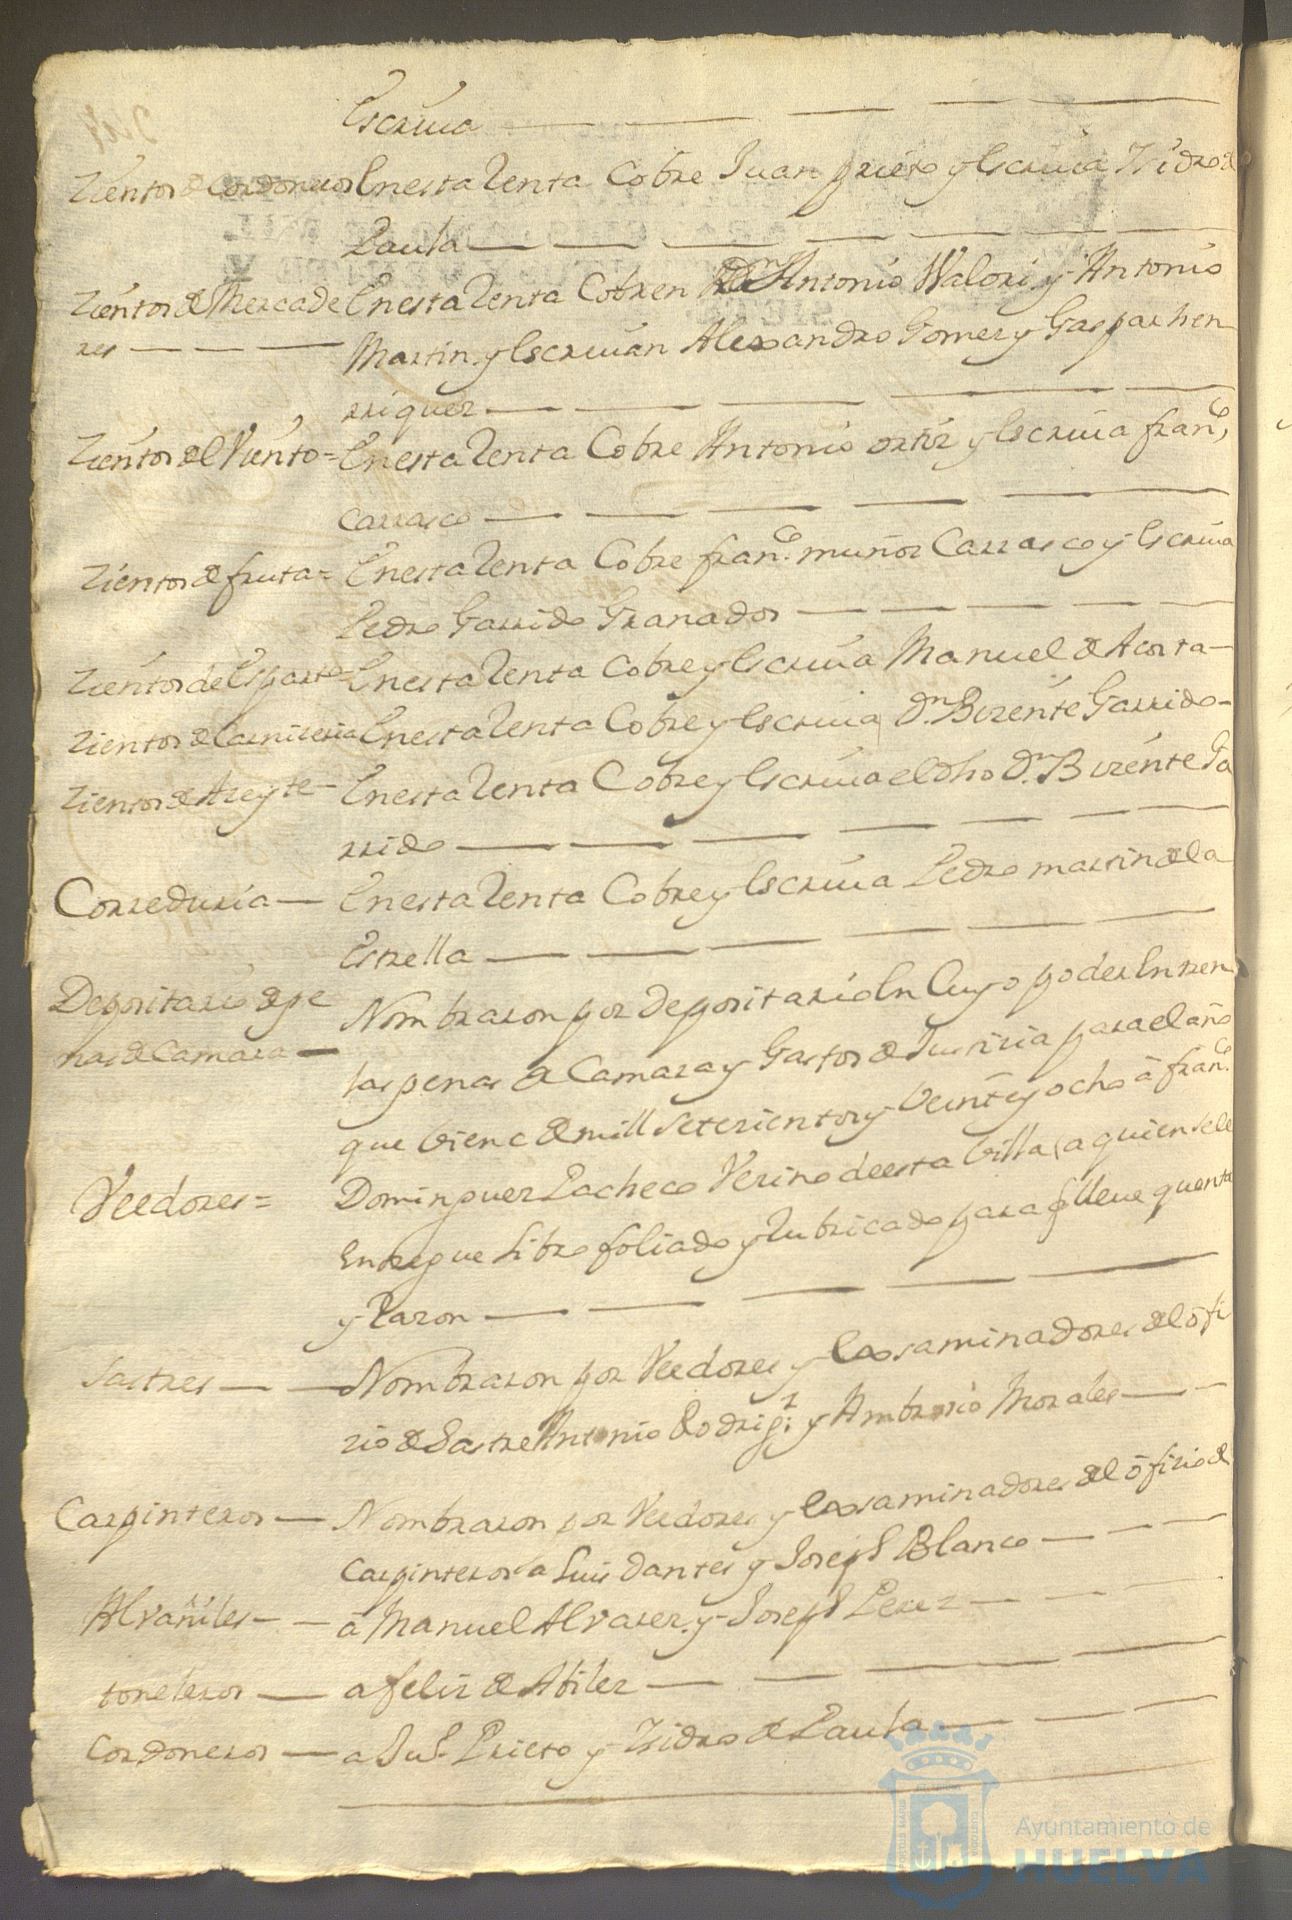 Escriua
Zientos de Cordoneros En esta Renta Cobre Juan prieto y Escriua Ysidro de
Paula
Zientos de Mercade En esta Renta Cobren Dn Antonio Walori y Antonio
res Martin y Escriuan Alexandro Gomez y Gaspar hen
rriquez
Zientos del Viento = En esta Renta Cobre Antonio ortiz y Escriua franco
Carrasco
Zientos de fruta = En esta Renta Cobre franco muñoz Carrasco y Escriua
Pedro Garrido Granados
Zientos de Esparto = En esta Renta Cobre y Escriua Manuel de Acosta
Zientos de Carniceria En esta Renta Cobre y Escriua Dn Bizente Garrido
Zientos de Azeyte En esta Renta Cobre y Escriua el dho Dn Bizente Ga
rrido
Correduria En esta Renta Cobre y Escriua Pedro martin de la
Estrella
Depositario de pe Nombraron por depositario En Cuyo poder Entren
nas de Camara las penas de Camara y Gastos de Justicia para el año
que biene de mill Setezientos y beinte y ocho â franco
Veedores = Dominguez Pacheco Vezino de esta billa, a quien se le
Entregue Libro foliado y Rubricado para q lleue quenta
y Razon
Sastres Nombraron por Veedores y Exsaminadores del ofi
zio de Sastre Antonio Rodrigz y Ambrosio Morales
Carpinteros Nombraron por Veedores y Exsaminadores del ofizio de
Carpinteros a Luis dantes y Joseph Blanco
Alvañiles a Manuel Alvarez y Joseph Perez
toneleros a feliz de Abilez
Cordoneros a Ju Prieto y Ysidro de Paula
Ayuntamiento de
HUELVA